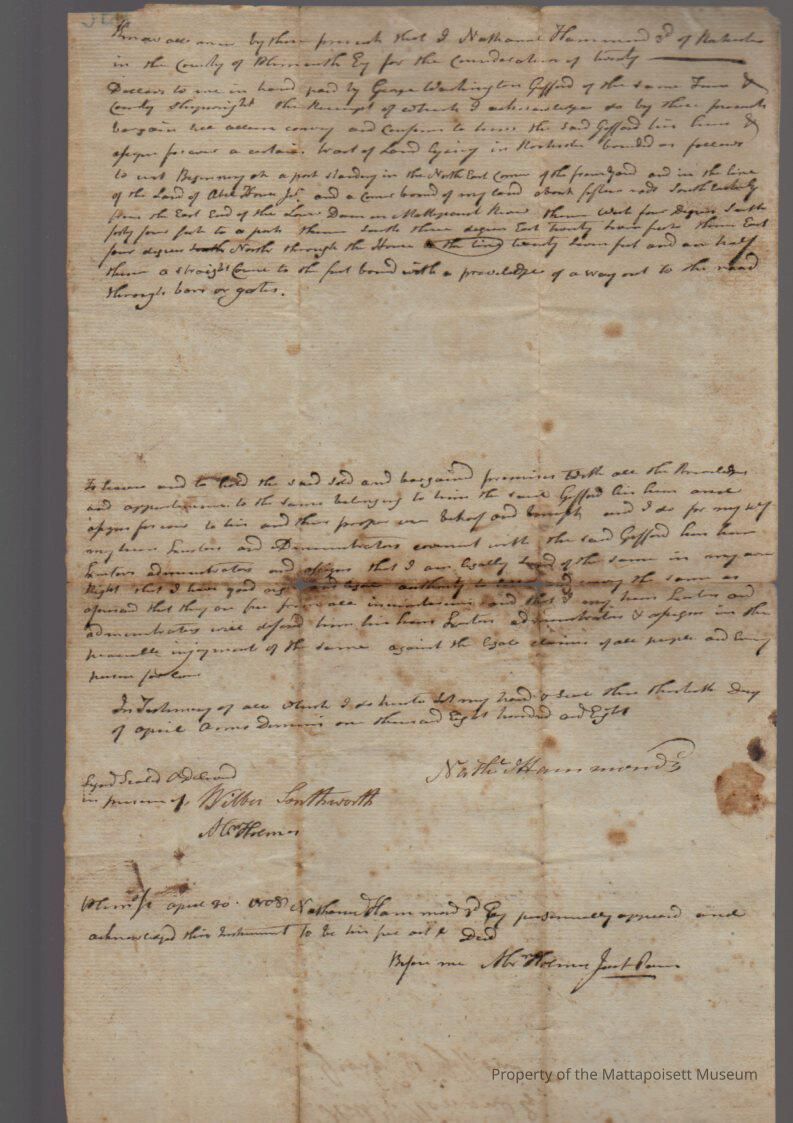 Know all men by these presents that I Nathaniel Hammond 3d of Rochester
in the County of Plimouth Esq for the Consideration of twenty
Dollars to me in hand paid by George Washington Gifford of the same Town &
County Shipwright the Receipt of which I acknowledge do by these presents
bargain sell convey and confirm to him the said Gifford his heirs &
assigns forever a certain tract of Land Lying in Rochester bounded as follows
to wit Beginning at a post standing in the North East Corner of the and in the line
of the Land of Abel Howe Jr and a corner bound of my land about fifteen rods South
from the East End of the Dam on Mattapoisett River thence West four degrees South
forty four feet to a post thence South three degrees East twenty seven feet thence East
four degrees North through the House the line twenty seven feet and an half
thence a straight Course to the first bound with a priviledge of a way out to the road
through bars or gates.
To have and to hold the said sold and bargained premises with all the Priviledges
and appurtenances to the same belonging to him the said Gifford his heirs and
assigns forever to his and their proper use behoof and benefit and I do for my self
my heirs Executors and Administrators covenant with the said Gifford his heirs
Executors administrators and assigns that I am legally of the same in my own
Right that I have good and authority to convey the same as
aforesaid that they are free from all incumbrances and that my heirs Executors and
administrators will defend him his heirs Executors administrators & assigns in the
peaceable enjoyment of the same against the legal claims of all people and every
person
In Testimony of all which I do hereto set my hand & seal this thirtieth Day
of April Anno Domini one thousand Eight hundred and Eight
Signed Sealed & Delivered
in presence of Wilbur Southworth
Abrm Holmes
Nathl Hammond 3d
Plimo ss april 30. 1808 Nathaniel Hammond 3d Esq personally appeared and
acknowledged this Instrument to be his free act & Deed
Before me Abrm Holmes Just Peace
Property of the Mattapoisett Museum